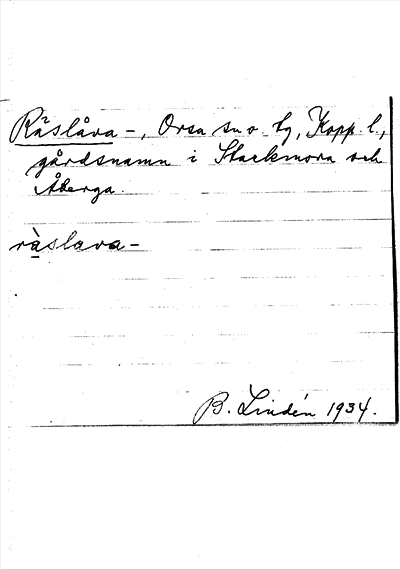 Räslåva-, Orsa sn o. tg, Kopp. l.,
gårdsnamn i Stackmora och
Åberga.
ràslava-
B. Lindén 1934.